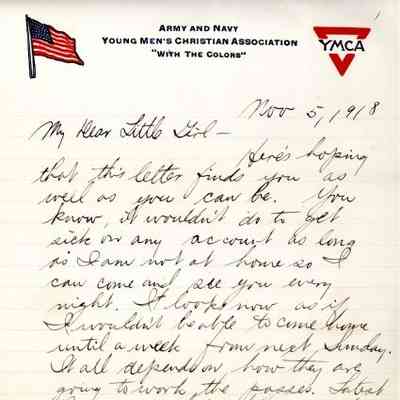 ARMY AND NAVY
YOUNG MEN'S CHRISTIAN ASSOCIATION
"WITH THE COLORS"
YMCA
Nov 5, 1918
My Dear Little Girl—
Here's hoping
that this letter finds you as
well as you can be. You
know, it wouldn't do to get
sick on any account as long
as I am not at home so I
can come and see you every
night. It looks now as if
I wouldn't be able to come home
until a week from next Sunday.
It all depends on how they are
going to work the passes. Latest